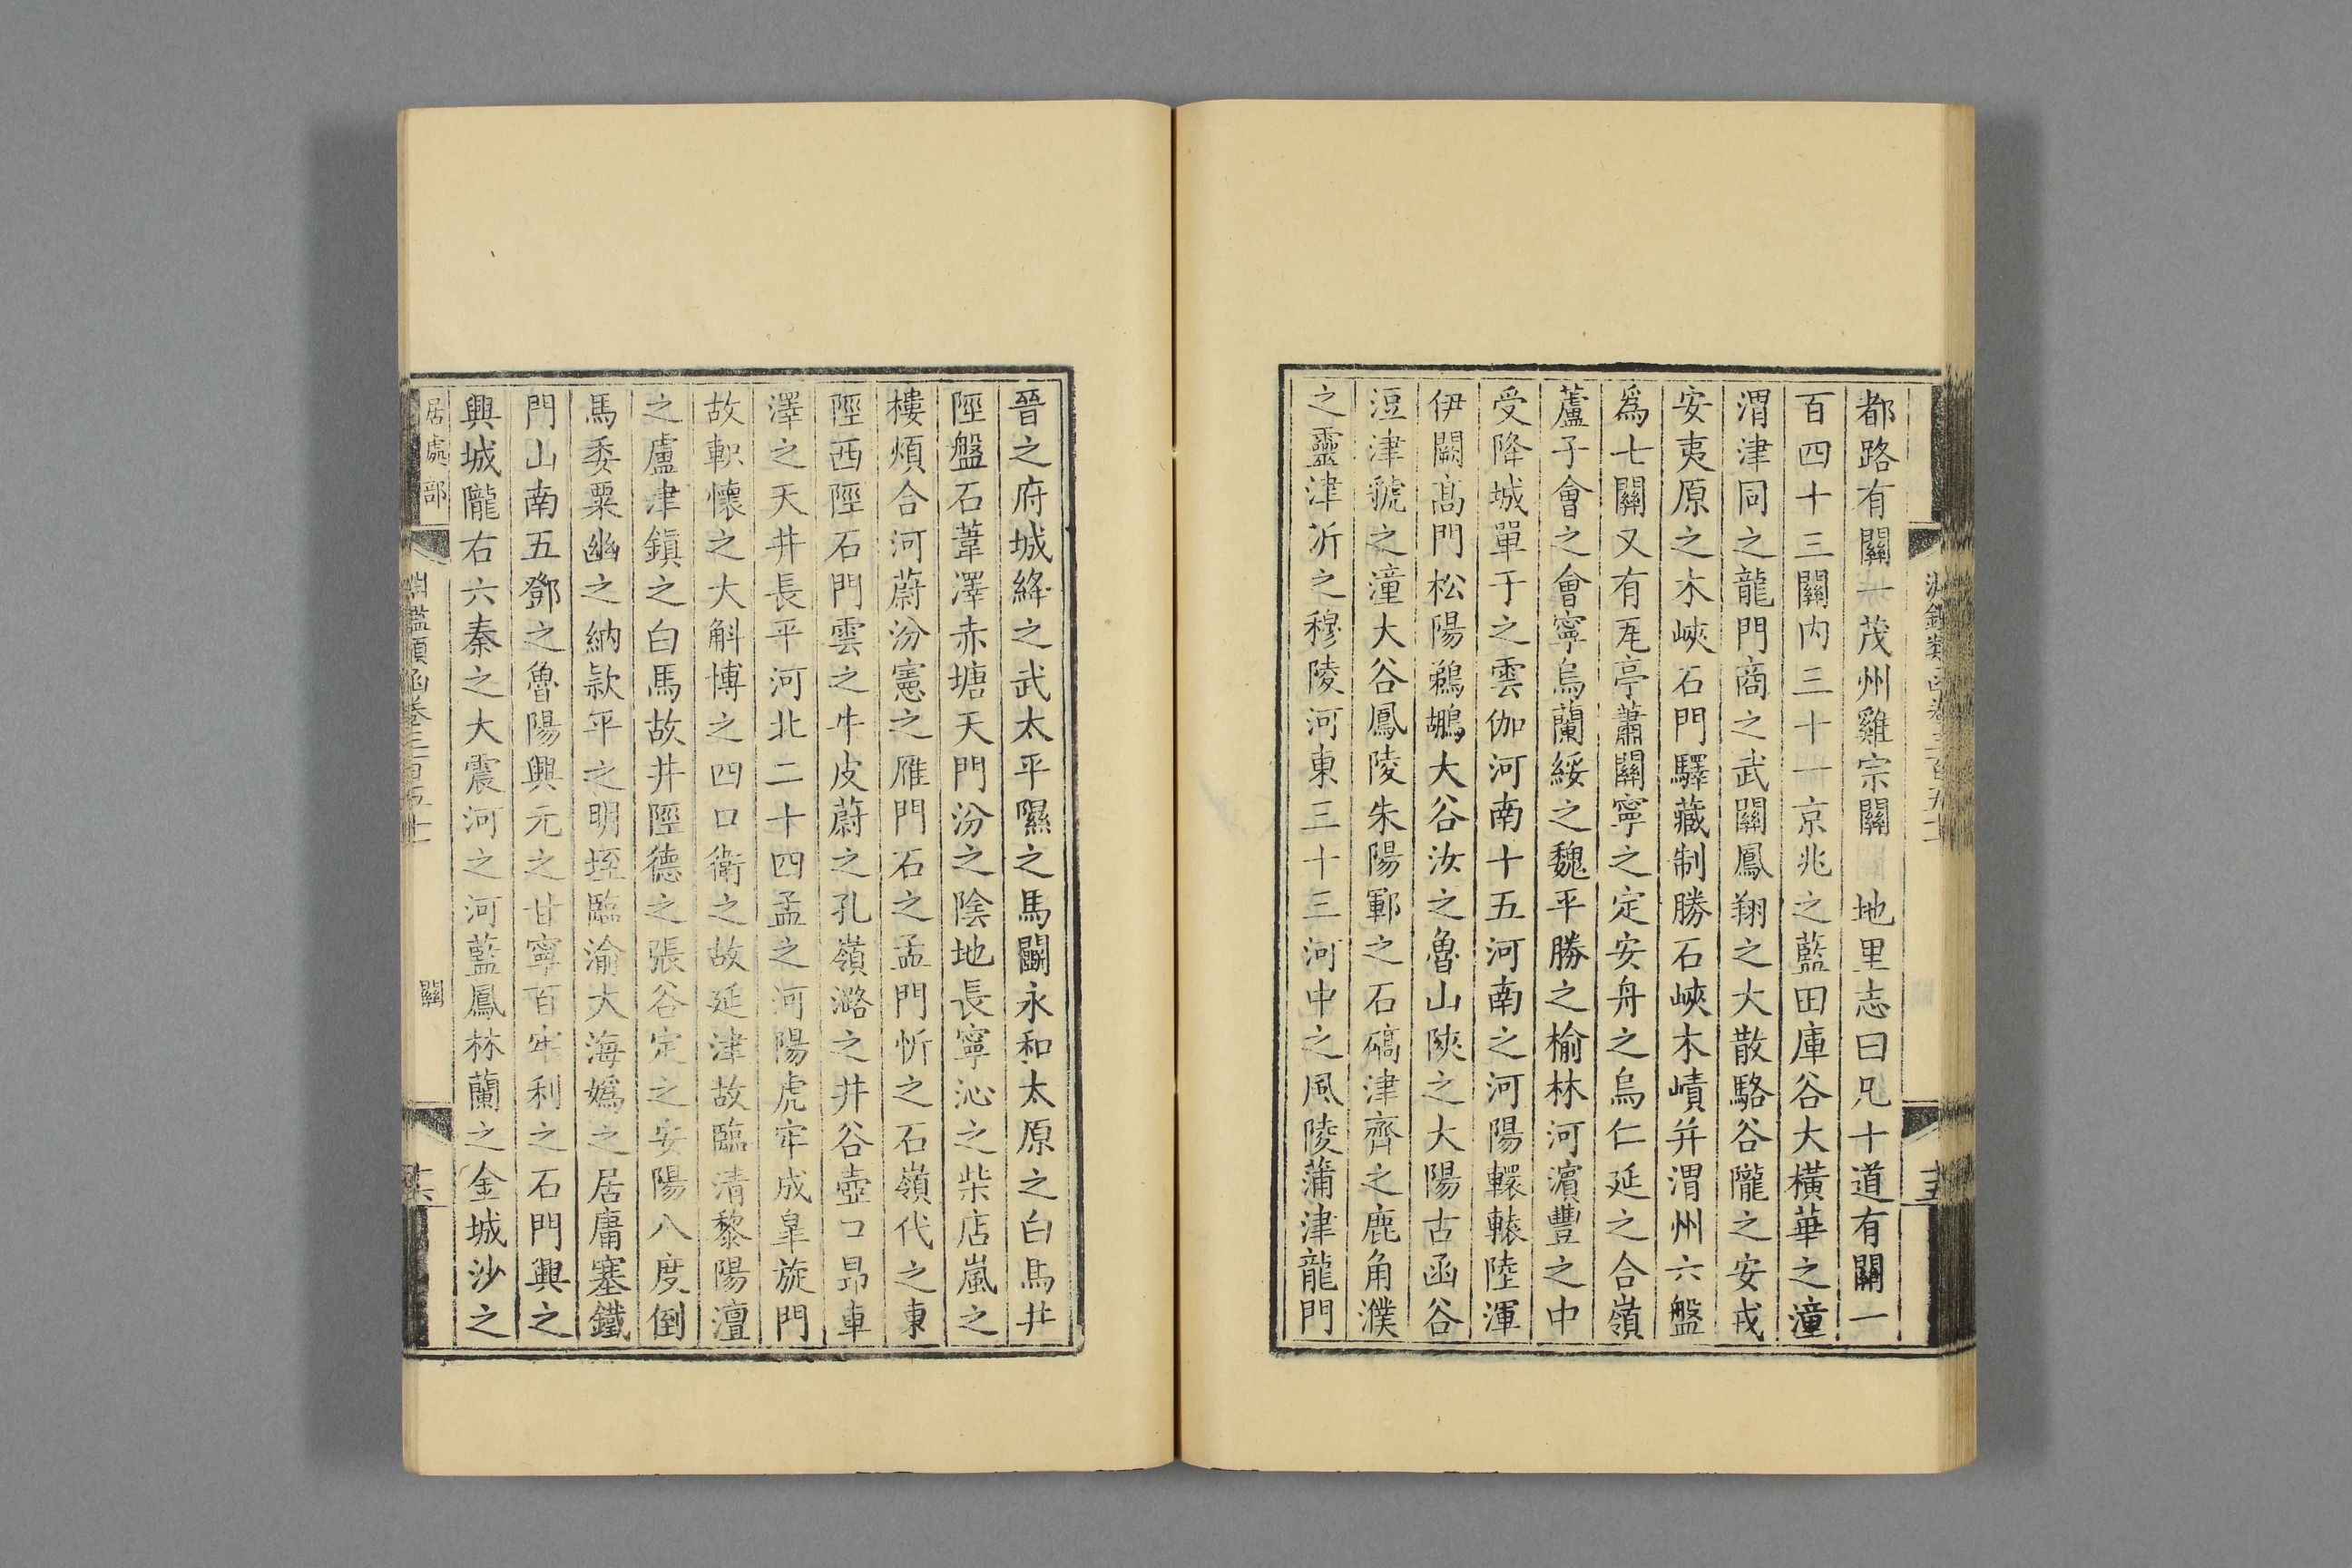 都路有關一茂州雞宗關 地里志曰兄十道有關一
百四十三關内三十一京兆之藍田庫谷大横華之潼
渭津同之龍門商之武關鳳翔之大散駱谷隴之安戎
安夷原之木峽石門驛藏制勝石峽木崝并渭州六盤
爲七關又有瓦亭蕭關寧之定安舟之烏仁延之合嶺
蘆子會之會寧烏蘭綏之魏平勝之榆林河濵豐之中
受降城單于之雲伽河南十五河南之河陽轘轅陸渾
伊闕髙門松陽鵜鶘大谷汝之魯山陜之大陽古函谷
浢津虢之潼大谷鳳陵朱陽鄆之石碻津齊之鹿角濮
之靈津沂之穆陵河東三十三河中之風陵蒲津龍門
晉之府城絳之武太平隰之馬鬭永和太原之白馬井
陘盤石葦澤赤塘天門汾之陰地長寧沁之柴店嵐之
樓煩合河蔚汾憲之雁門石之孟門忻之石嶺代之東
陘西陘石門雲之牛皮蔚之孔嶺潞之井谷壺口昻車
澤之天井長平河北二十四孟之河陽虎牢成臯旋門
故軹懷之大斛博之四口衛之故延津故臨清黎陽澶
之盧津鎮之白馬故井陘德之張谷定之安陽八度倒
馬委粟幽之納欵平之明垤臨渝大海嬀之居庸塞鐵
門山南五鄧之魯陽興元之甘寧百牢利之石門興之
興城隴右六秦之大震河之河藍鳳林蘭之金城沙之
居處部
淵鑑類函卷三百五十
關